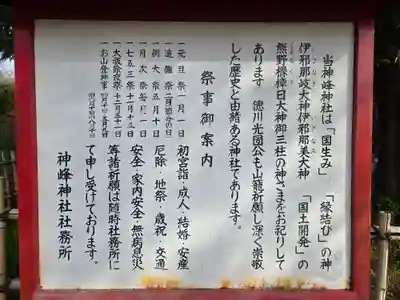 当神峰神社は「国生み」「縁結び」の神
伊邪那岐大神伊邪那美大神「国土開発」の
熊野櫲樟日大神御三柱の神さまをお祀りして
あります 徳川光圀公も山籠祈願し深く崇敬
した歴史と由緒ある神社であります。
祭事御案内
一、元旦祭一月一日
一、追儺祭二月節分の日
一、例大祭
一、月次祭毎月一日
一、七五三祭十一月十三日
一、大祓除夜祭十二月三十一日
一、お山登神事
初宮詣・成人・結婚・安産
厄除・地祭・歳祝・交通
安全・家内安全・無病息災
等諸祈願は随時社務所に
て申し受けております。
神峰神社社務所